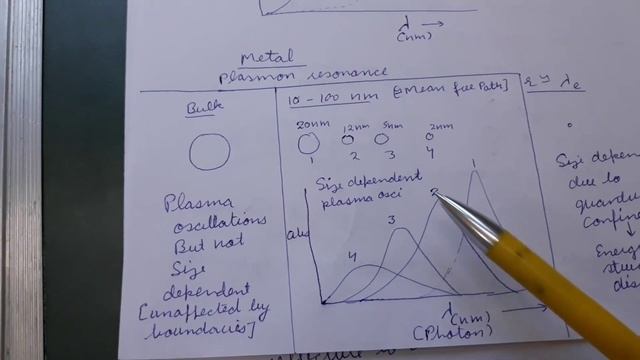 λ →
(nm)
Metal
plasmon resonance
Bulk
Plasma
oscillations
But not
Size
dependent
[unaffected by
boundaries]
10-100 nm [≈Mean free Path]
20nm 12nm 5nm 2nm
1 2 3 4
Size dependent
plasma osci
1
2
3
4
abs
λ(nm) →
(Photon)
r ≈ λe
Size depen
due to
quantu
confine
↓
Energ
stru
dis